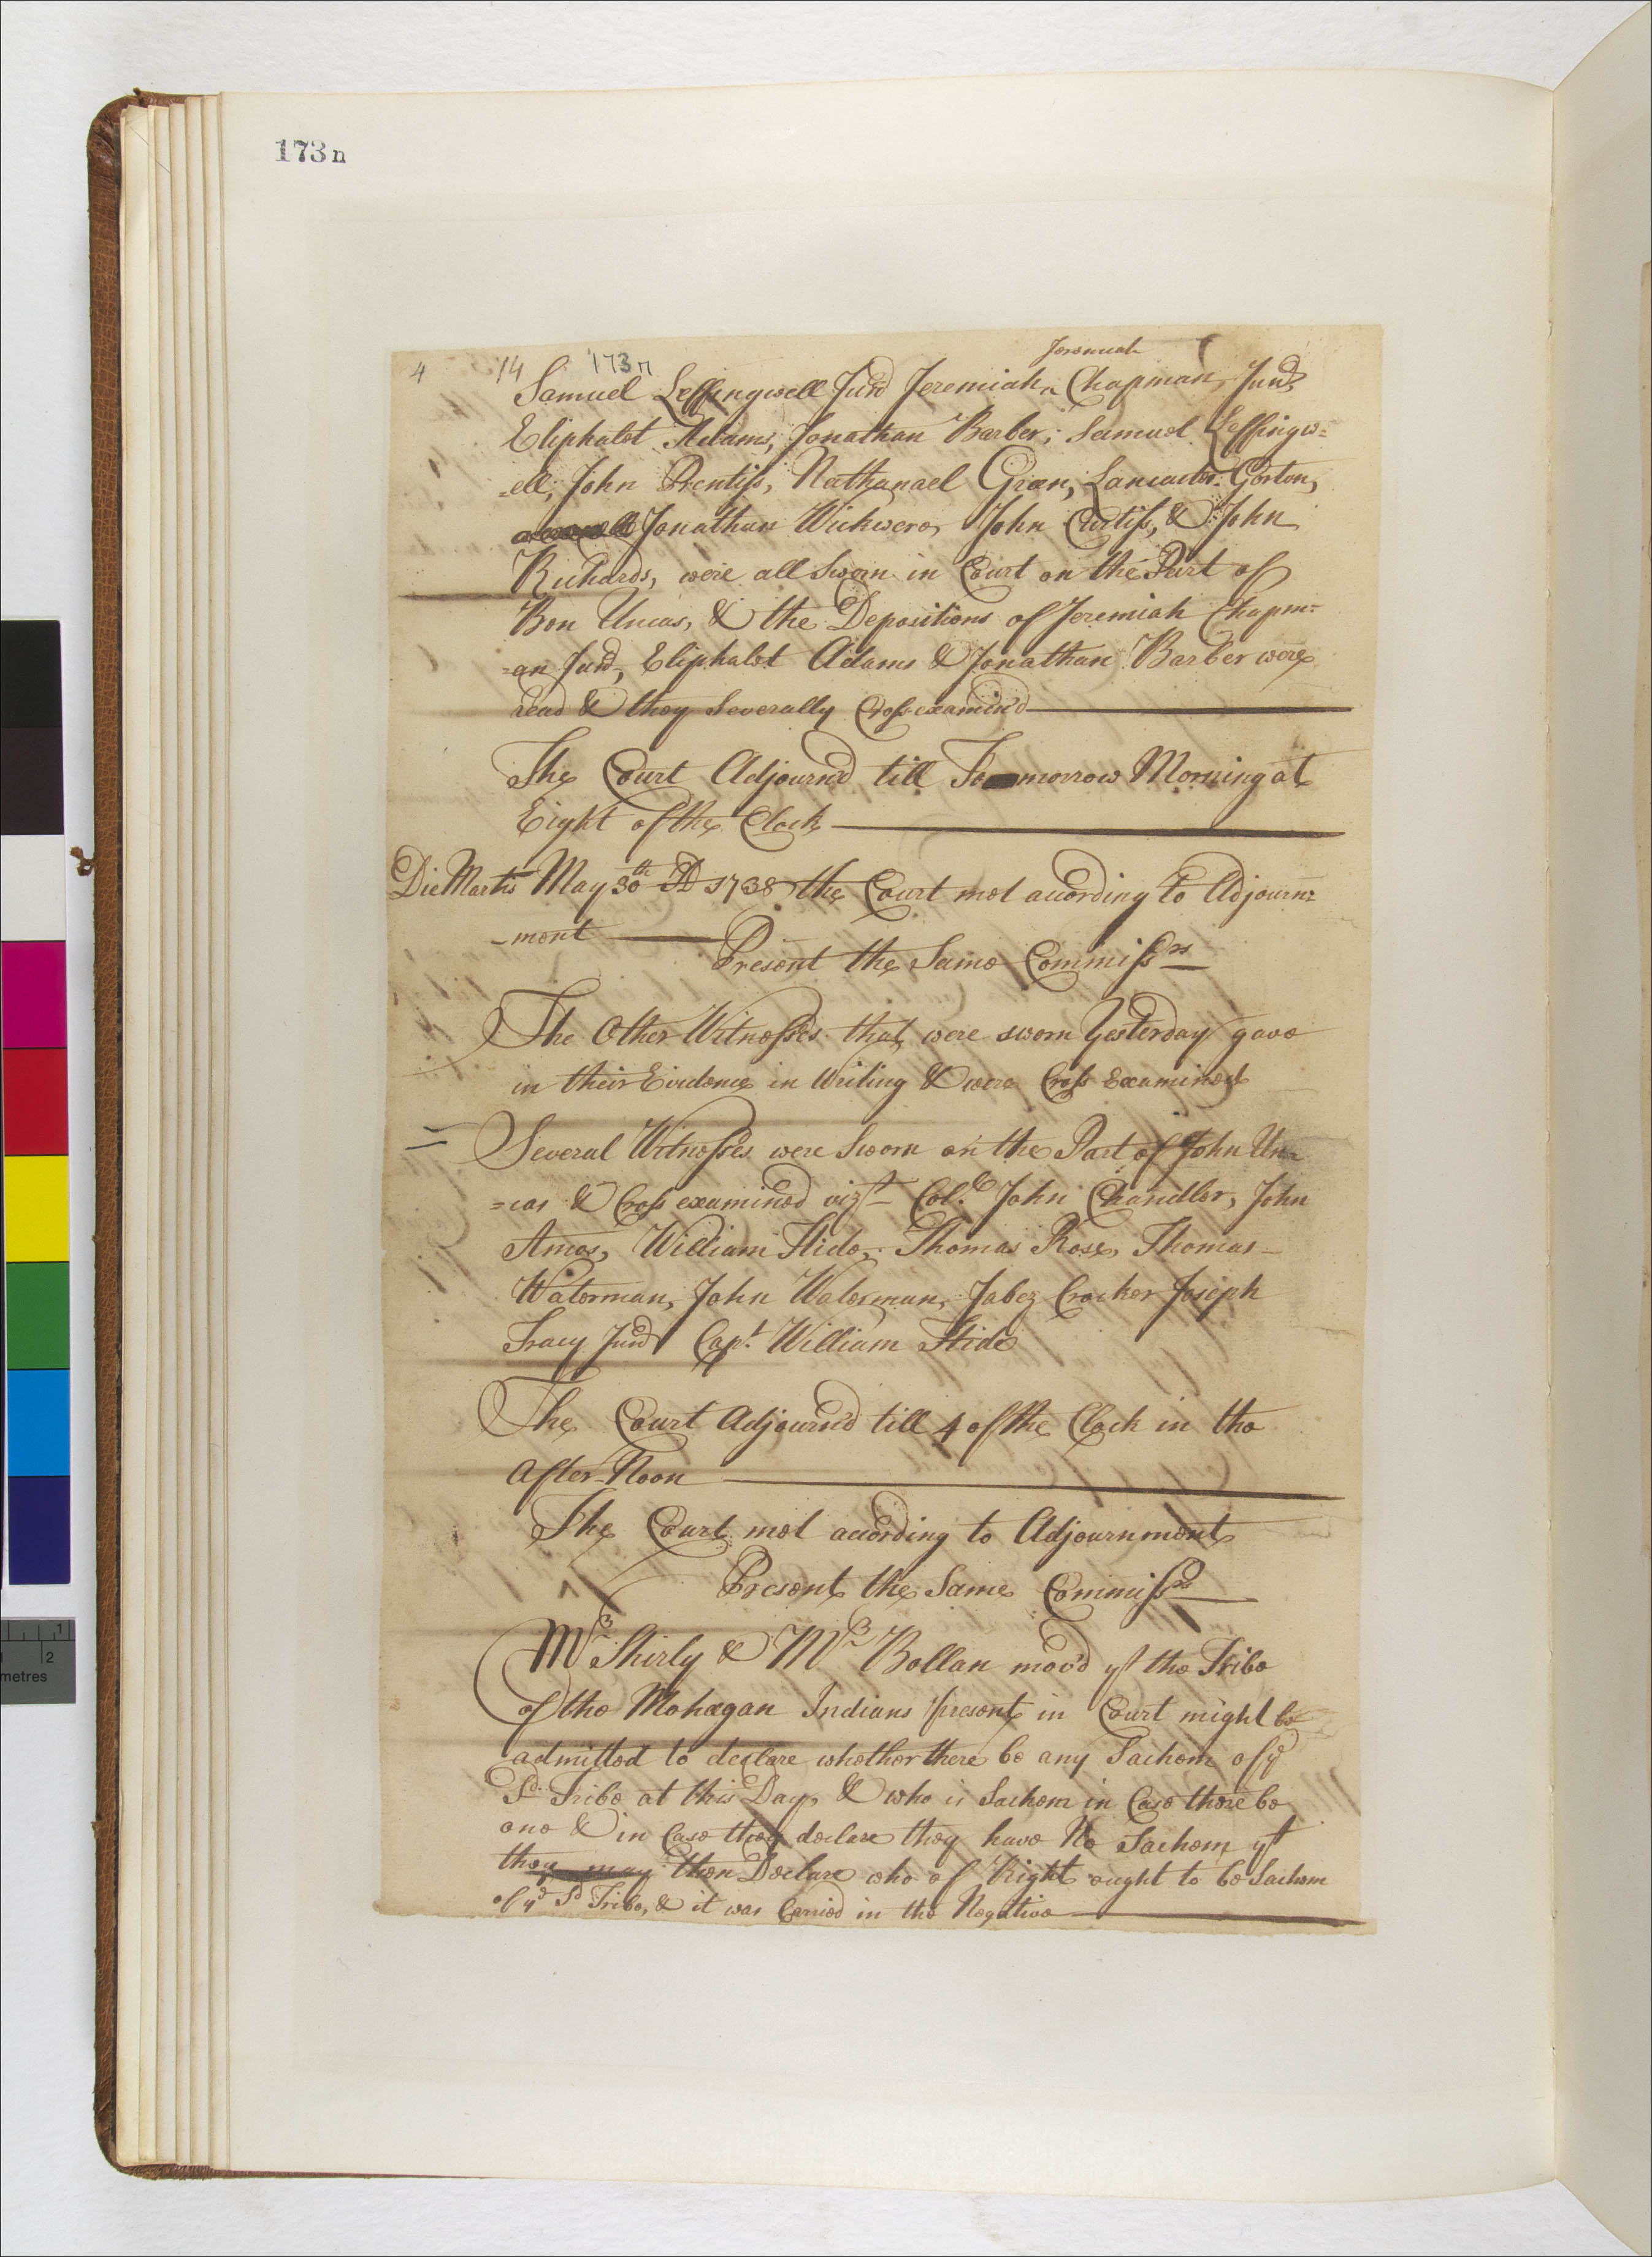 173n
4 14 173n
Jeremiah
Samuel Leffingwell Junr Jeremiah ^ Chapman, Junr,
Eliphalet Adams, Jonathan Barber, Samuel Leffingw=
=ell, John Prentiss, Nathanael Green, Lancaster Gorton,
Jonathan Wickwere, John Curtiss, & John
Richards, were all Sworn in Court on the Part of
Ben Uncas, & the Depositions of Jeremiah Chapm=
=an Junr, Eliphalet Adams & Jonathan Barber were
read & they Severally Cross-examin'd
The Court Adjourn'd till To morrow Morning at
Eight of the Clock
Die Martis May 30th AD 1738 the Court met according to Adjourn=
-ment
Present the Same Commissrs
The Other Witnesses that were sworn Yesterday gave
in their Evidence in Writing & were Cross Examined
Several Witnesses were Sworn on the Part of John Un=
=cas & Cross examined vizt Coll. John Chandler, John
Amos, William Hide, Thomas Rose, Thomas
Waterman, John Waterman, Jabez Crocker Joseph
Tracy Junr Capt. William Hide
The Court Adjourn'd till 4 of the Clock in the
After-Noon
The Court met according to Adjournment
Present the Same Commissrs
Mr Shirly & Mr Bollan mov'd yt the Tribe
of the Mohegan Indians present in Court might be
admitted to declare whether there be any Sachem of ye
Sd. Tribe at this Day, & who is Sachem in Case there be
one & in Case they declare they have No Sachem yt
they may then Declare who of Right ought to be Sachem
of ye Sd Tribe, & it was Carried in the Negative
1
2
metres